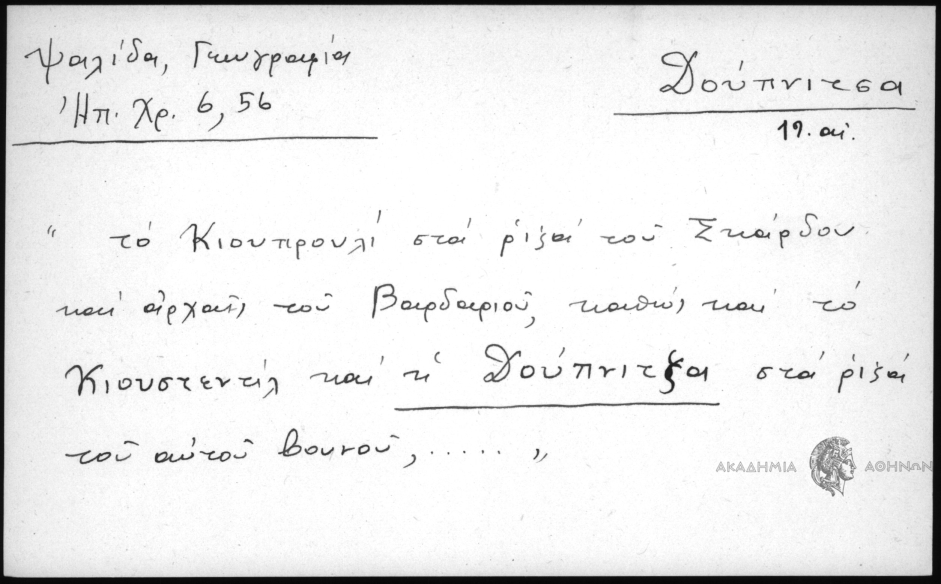 Ψαλίδα, Γεωγραφία
Ἠπ. Χρ. 6, 56
Δούπνιτσα
19. αἰ.
“ τό Κιουπρουλί στά ῥιζά τοῦ Σκάρδου
καί ἀρχαῖς τοῦ Βαρδαριοῦ, καθώς καί τό
Κιουστεντίλ καί ἡ Δούπνιτξα στά ῥιζά
τοῦ αὐτοῦ βουνοῦ, ..... „
ΑΚΑΔΗΜΙΑ ΑΘΗΝΩΝ